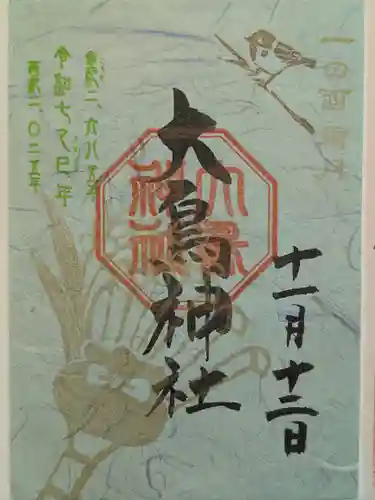 一の酉
大鳥神社
十一月十二日
皇紀二、六八五年
令和七乙巳年
西暦二、〇二五年